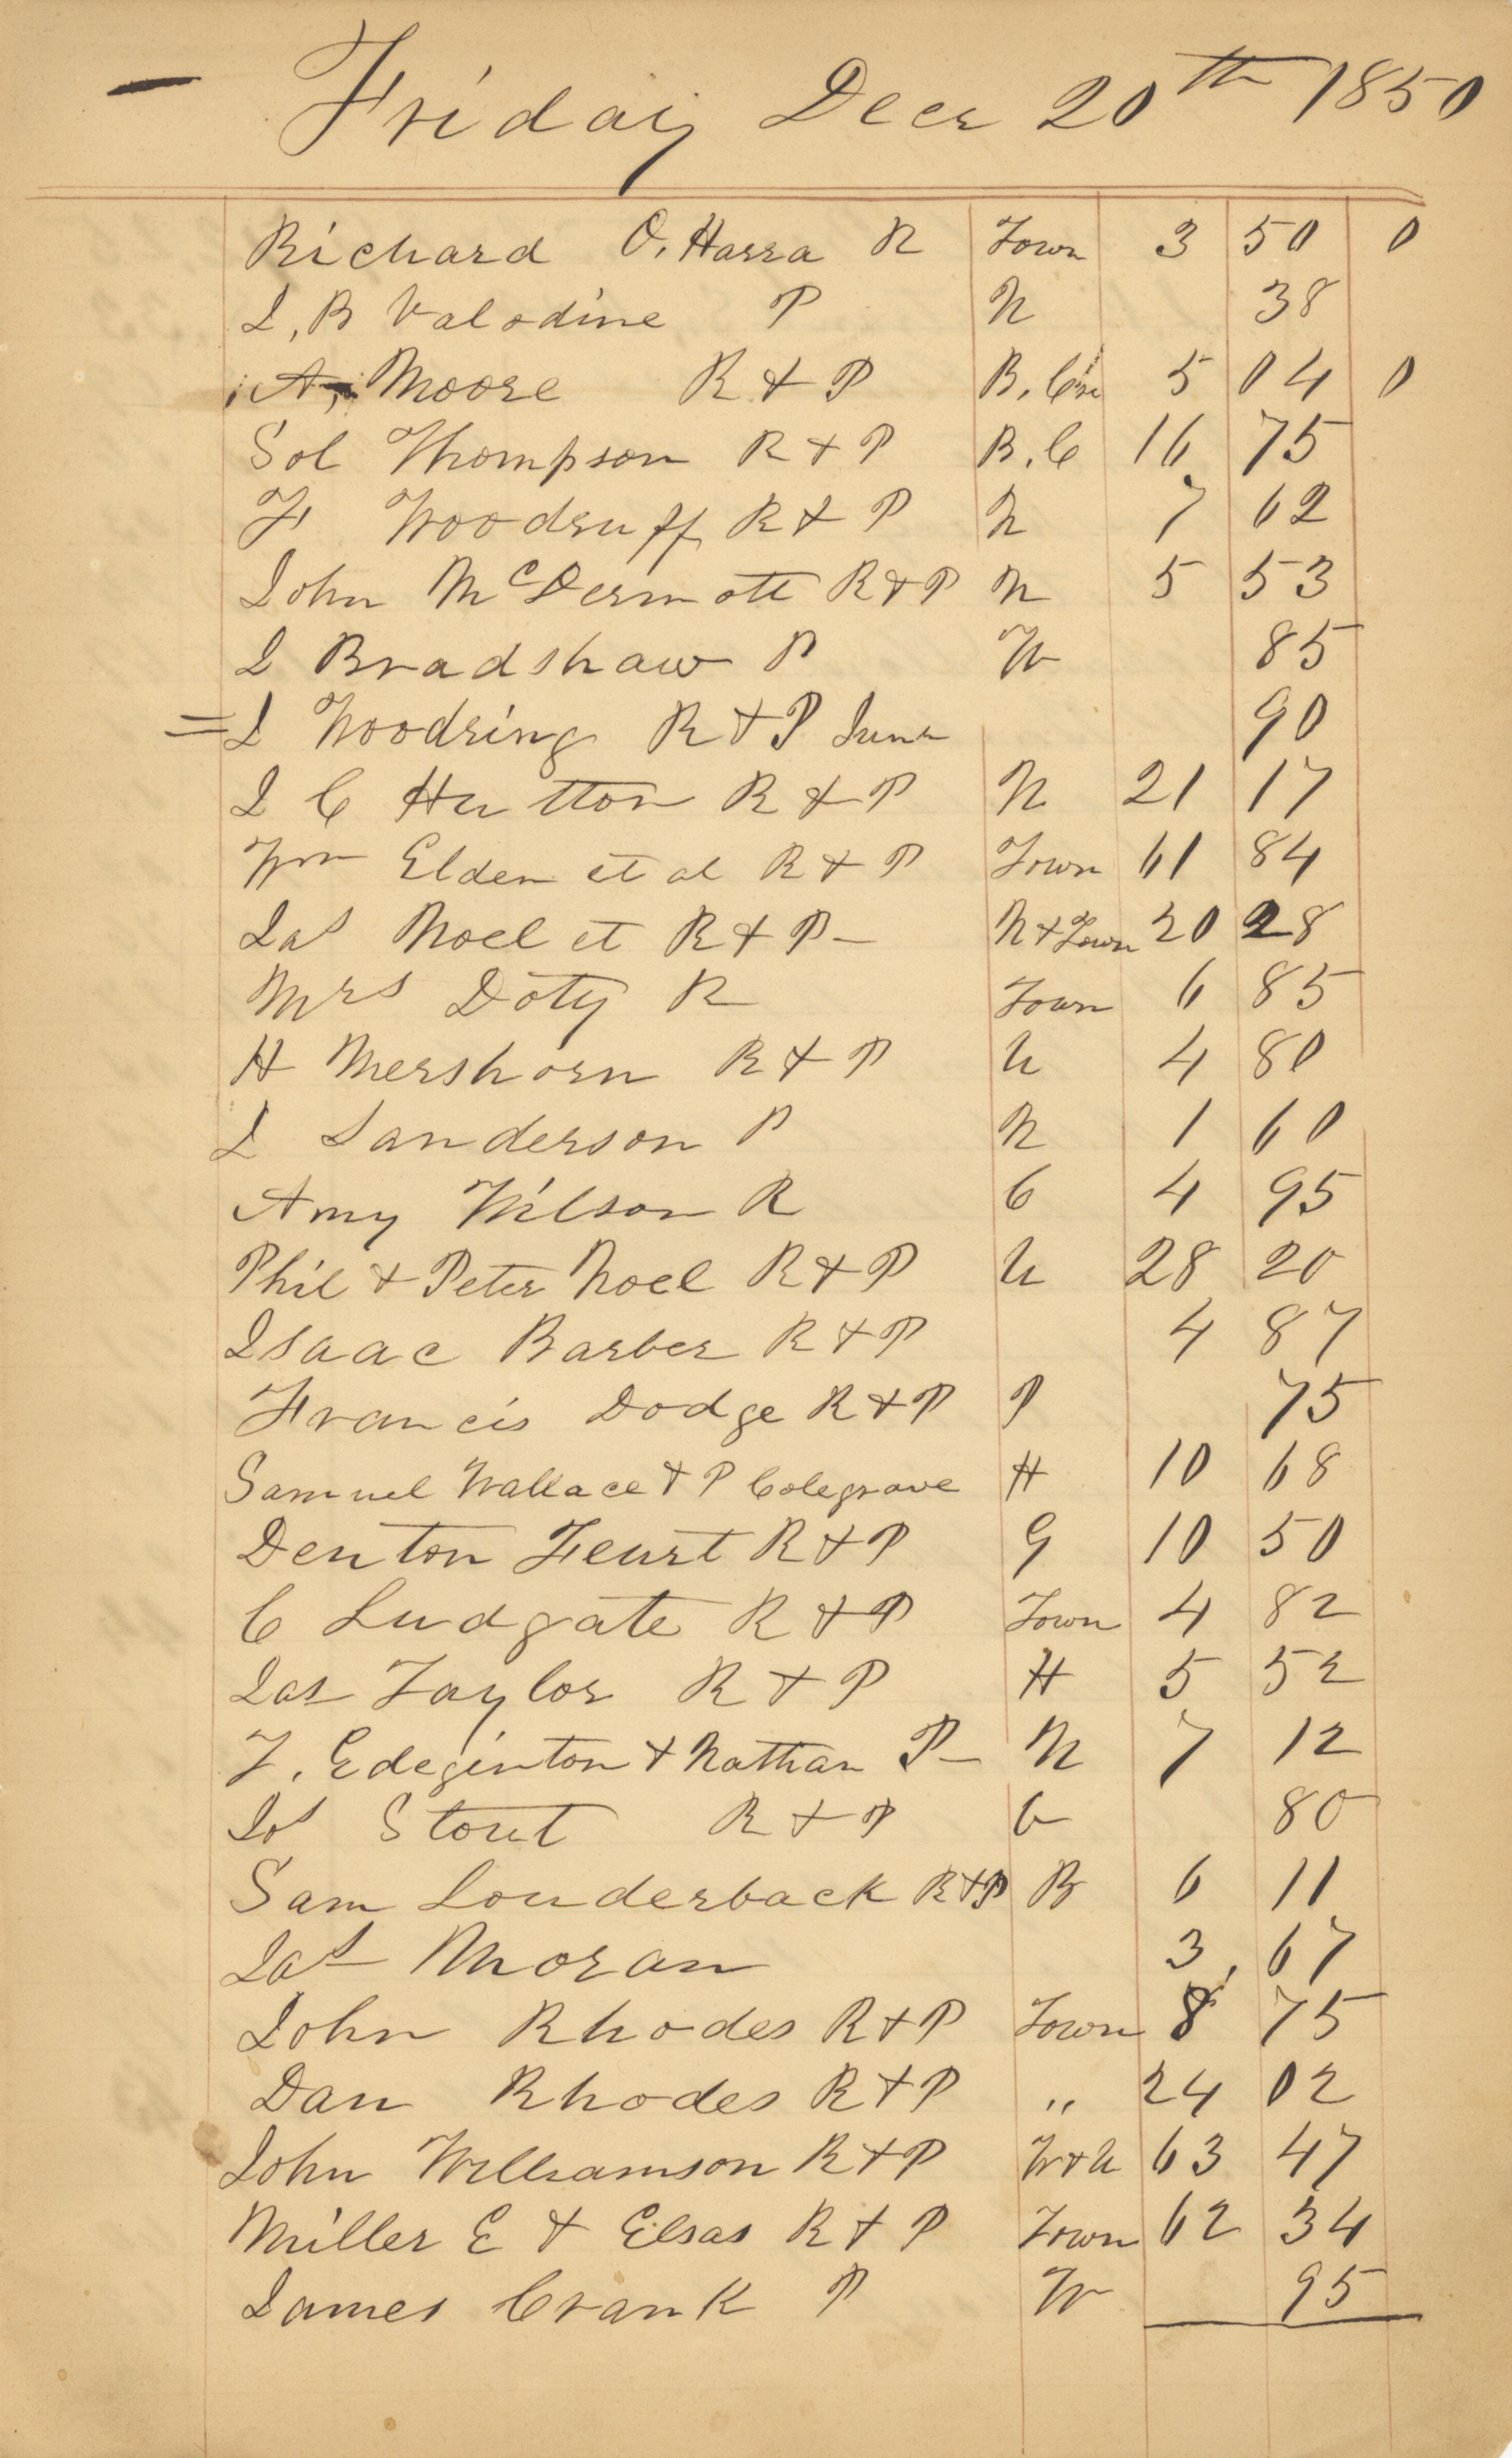 — Friday Decr 20th 1850
Richard O,Harra R Town 3 50 0
J, B Valodine P N 38
A, Moore R + P B, C 5 04 0
Sol Thompson R + P B, C 16 75
F Woodruff R + P N 7 62
John McDermott R + P N 5 53
J Bradshaw P W 85
= J Woodring R + P June 90
J C Hutton R + P N 21 17
Wm Elden et al R + P Town 61 84
Jas Noel et R + P — N + Town 20 28
Mrs Doty R Town 6 85
H Mershorn R + P U 4 80
J Sanderson P N 1 60
Amy Wilson R C 4 95
Phil + Peter Noel R + P U 28 20
Isaac Barber R + P 4 87
Francis Dodge R + P P 75
Samuel Wallace + P Colegrove H 10 68
Denton Feurt R + P G 10 50
C Ludgate R + P Town 4 82
Jas Taylor R + P H 5 52
T. Edeginton + Nathan P — N 7 12
Jos Stout R + P 80
Sam Louderback R + P B 6 11
Jas Moran 3, 67
John Rhodes R + P Town 8 75
Dan Rhodes R + P " 24 02
John Williamson R + P W + U 63 47
Miller E + Elsas R + P Town 62 34
James Crank P W 95